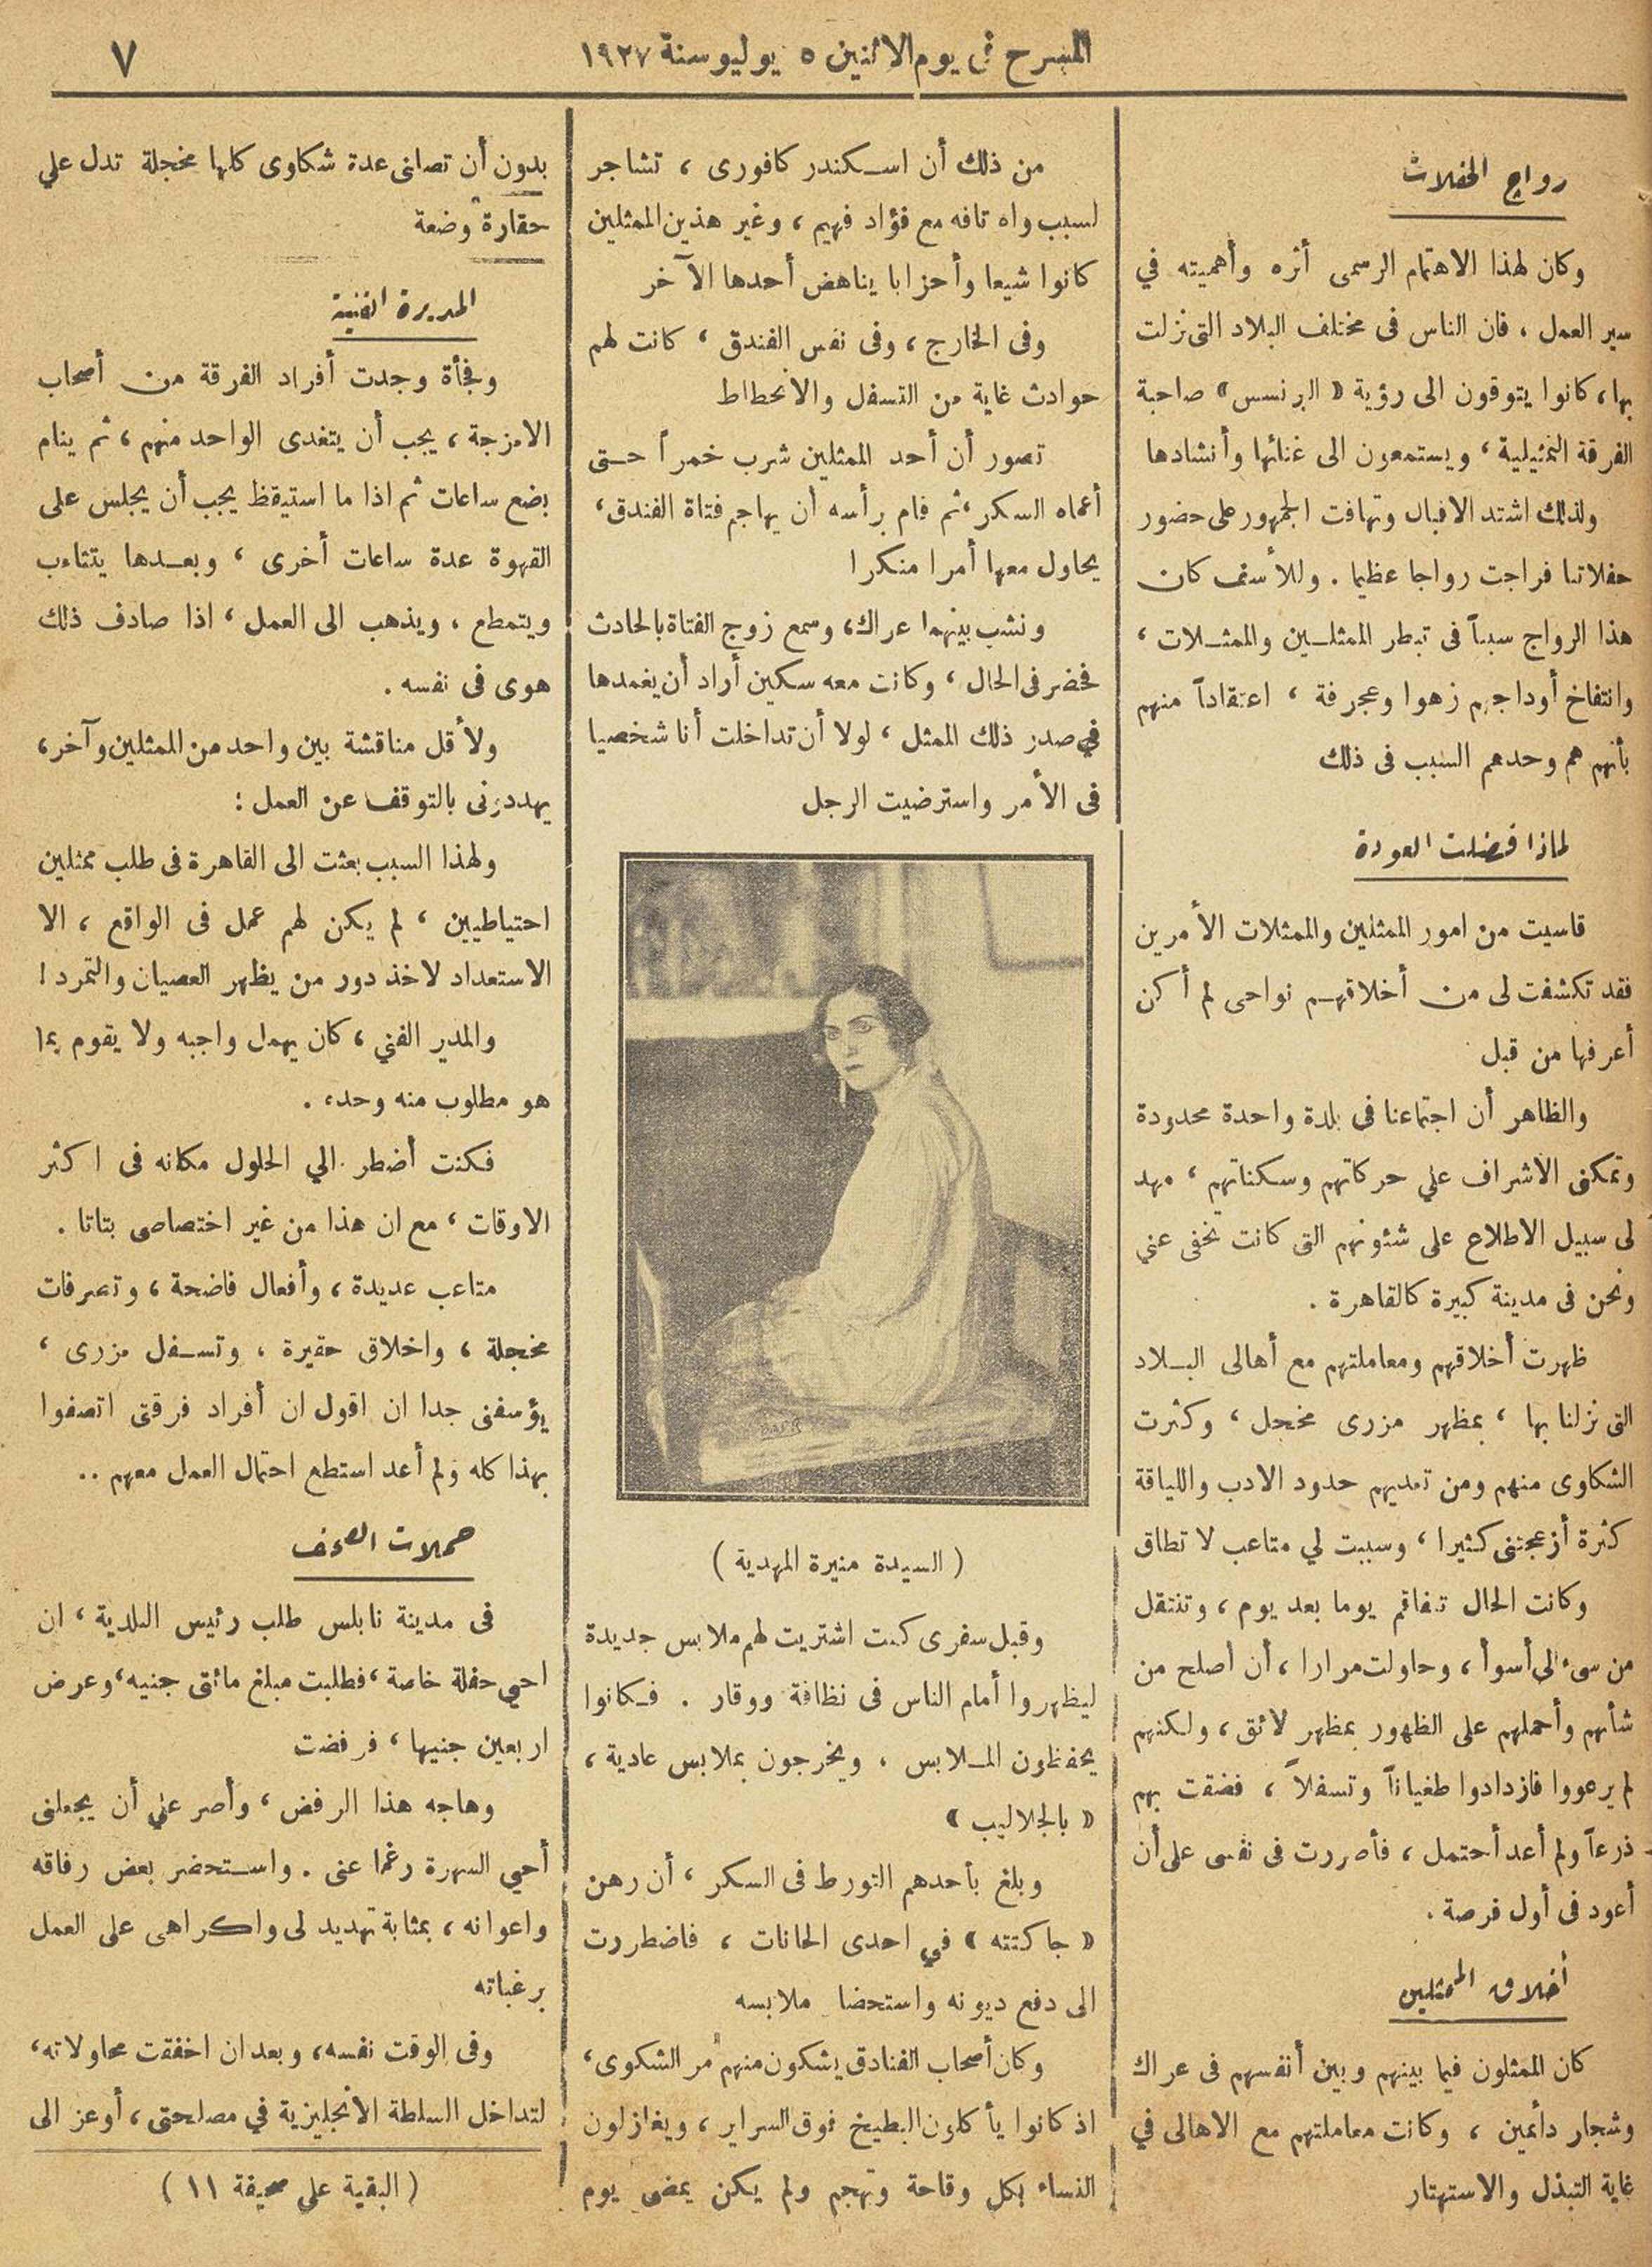 المسرح في يوم الاثنين ٥ يوليو سنة ١٩٢٧
٧
رواج الحفلات
وكان لهذا الاهتمام الرسمى أثره وأهميته في
سير العمل ، فان الناس فى مختلف البلاد التى نزلت
بها ، كانوا يتوقون الى رؤية « البرنسس » صاحبة
الفرقة التمثيلية ، ويستمعون الى غنائها وأنشادها
ولذلك اشتد الاقبال وتهافت الجمهور على حضور
حفلاتنا فراجت رواجا عظيما . وللأسف كان
هذا الرواج سبباً فى تبطر الممثلـين والممثـلات ،
وانتفاخ أوداجهم زهوا وعجرفة ، اعتقاداً منهم
بأنهم هم وحدهم السبب فى ذلك
لماذا فضلت العودة
قاسيت من امور الممثلين والممثلات الأمرين
فقد تكشفت لى من أخلاقهـم نواحى لم أكن
أعرفها من قبل
والظاهر أن اجتماعنا فى بلدة واحدة محدودة
وتمكنى الاشراف علي حركاتهم وسكناتهم ، مهد
لى سبيل الاطلاع على شئونهم التى كانت تخفى عني
ونحن فى مدينة كبيرة كالقاهرة .
ظهرت أخلاقهم ومعاملتهم مع أهالى البـلاد
التى نزلنا بها ، بمظهر مزرى مخجل ، وكثرت
الشكاوى منهم ومن تعديهم حدود الادب واللياقة
كثرة أزعجتنى كثيرا ، وسببت لي متاعب لا تطاق
وكانت الحال تتفاقم يوما بعد يوم ، وتنتقل
من سىء الى أسوأ ، وحاولت مرارا ، أن أصلح من
شأنهم وأحملهم على الظهور بمظهر لائق ، ولكنهم
لم يرعووا فازدادوا طغياناً وتسفلاً ، فضقت بهم
ذرعاً ولم أعد أحتمل ، فأصررت فى نفسى على أن
أعود فى أول فرصة .
أخلاق الممثلين
كان الممثلون فيما بينهم وبين أنفسهم فى عراك
وشجار دائمين ، وكانت معاملتهم مع الاهالى في
غاية التبذل والاستهتار
من ذلك أن اسـكندر كافورى ، تشاجر
لسبب واه تافه مع فؤاد فهيم ، وغير هذين الممثلين
كانوا شيعا وأحزابا يناهض أحدها الآخر
وفى الخارج ، وفى نفس الفندق ، كانت لهم
حوادث غاية من التسفل والانحطاط
تصور أن أحد الممثلين شرب خمراً حـتى
أعماه السكر ، ثم قام برأسه أن يهاجم فتاة الفندق ،
يحاول معها أمرا منكرا
ونشب بينهما عراك ، وسمع زوج الفتاة بالحادث
فحضر فى الحال ، وكانت معه سكين أراد أن يغمدها
في صدر ذلك الممثل ، لولا أن تداخلت أنا شخصيا
فى الأمر واسترضيت الرجل
( السيدة منيرة المهدية )
وقبل سفرى كنت اشتريت لهم ملابس جديدة
ليظهروا أمام الناس فى نظافة ووقار . فـكانوا
يحفظون المـلابس ، ويخرجون بملابس عادية ،
« بالجلاليب »
وبلغ بأحدهم التورط فى السكر ، أن رهن
« جاكتته » في احدى الحانات ، فاضطررت
الى دفع ديونه واستحضا ملابسه
وكان أصحاب الفنادق يشكون منهم مر الشكوى ،
اذ كانوا يأكلون البطيخ فوق السراير ، ويغازلون
النساء بكل وقاحة وتهجم ولم يكن يمضى يوم
بدون أن تصلنى عدة شكاوى كلها مخجلة تدل علي
حقارة وضعة
المديرة الفنية
وفجأة وجدت أفراد الفرقة من أصحاب
الامزجة ، يجب أن يتغدى الواحد منهم ، ثم ينام
بضع ساعات ثم اذا ما استيقظ يجب أن يجلس على
القهوة عدة ساعات أخرى ، وبعـدها يتثاءب
ويتمطع ، ويذهب الى العمل ، اذا صادف ذلك
هوى فى نفسه .
ولأقل مناقشة بين واحد من الممثلين وآخر ،
يهددونى بالتوقف عن العمل :
ولهذا السبب بعثت الى القاهرة فى طلب ممثلين
احتياطيين ، لم يكن لهم عمل فى الواقع ، الا
الاستعداد لاخذ دور من يظهر العصيان والتمرد !
والمدير الفني ، كان يهمل واجبه ولا يقوم بما
هو مطلوب منه وحده .
فكنت أضطر الي الحلول مكانه فى اكثر
الاوقات ، مع ان هذا من غير اختصاصى بتاتا .
متاعب عديدة ، وأفعال فاضحة ، وتصرفات
مخجلة ، واخلاق حقيرة ، وتسـفل مزرى ،
يؤسفنى جدا ان اقول ان أفراد فرقتى اتصفوا
بهذا كله ولم أعد استطع احتمال العمل معهم ..
حملات الصحف
فى مدينة نابلس طلب رئيس البلدية ، ان
احيي حفلة خاصة ، فطلبت مبلغ مائتى جنيه ، وعرض
اربعين جنيها ، فرفضت
وهاجه هذا الرفض ، وأصر علي أن يجعلنى
أحيي السهرة رغما عنى . واسـتحضر بعض رفاقه
واعوانه ، بمثابة تهديد لى واكراهى على العمل
برغباته
وفى الوقت نفسه ، وبعد ان اخفقت محاولاته ،
لتداخل السلطة الانجليزية في مصلحتى ، أوعز الى
( البقية علي صحيفة ١١ )